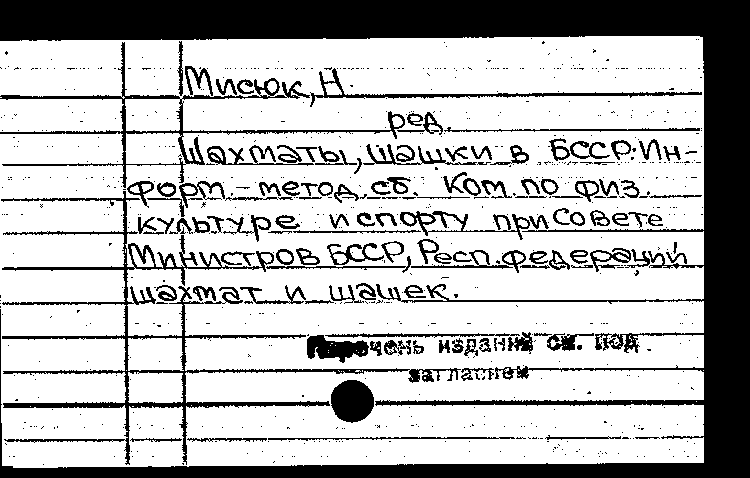 Мисюк, Н.
ред.
Шахматы, шашки в БССР: Ин-
форм.-метод. сб. Ком. по физ.
культуре и спорту при Совете
Министров БССР, Респ. федераций
шахмат и шашек.
Перечень изданий см. под
заглавием